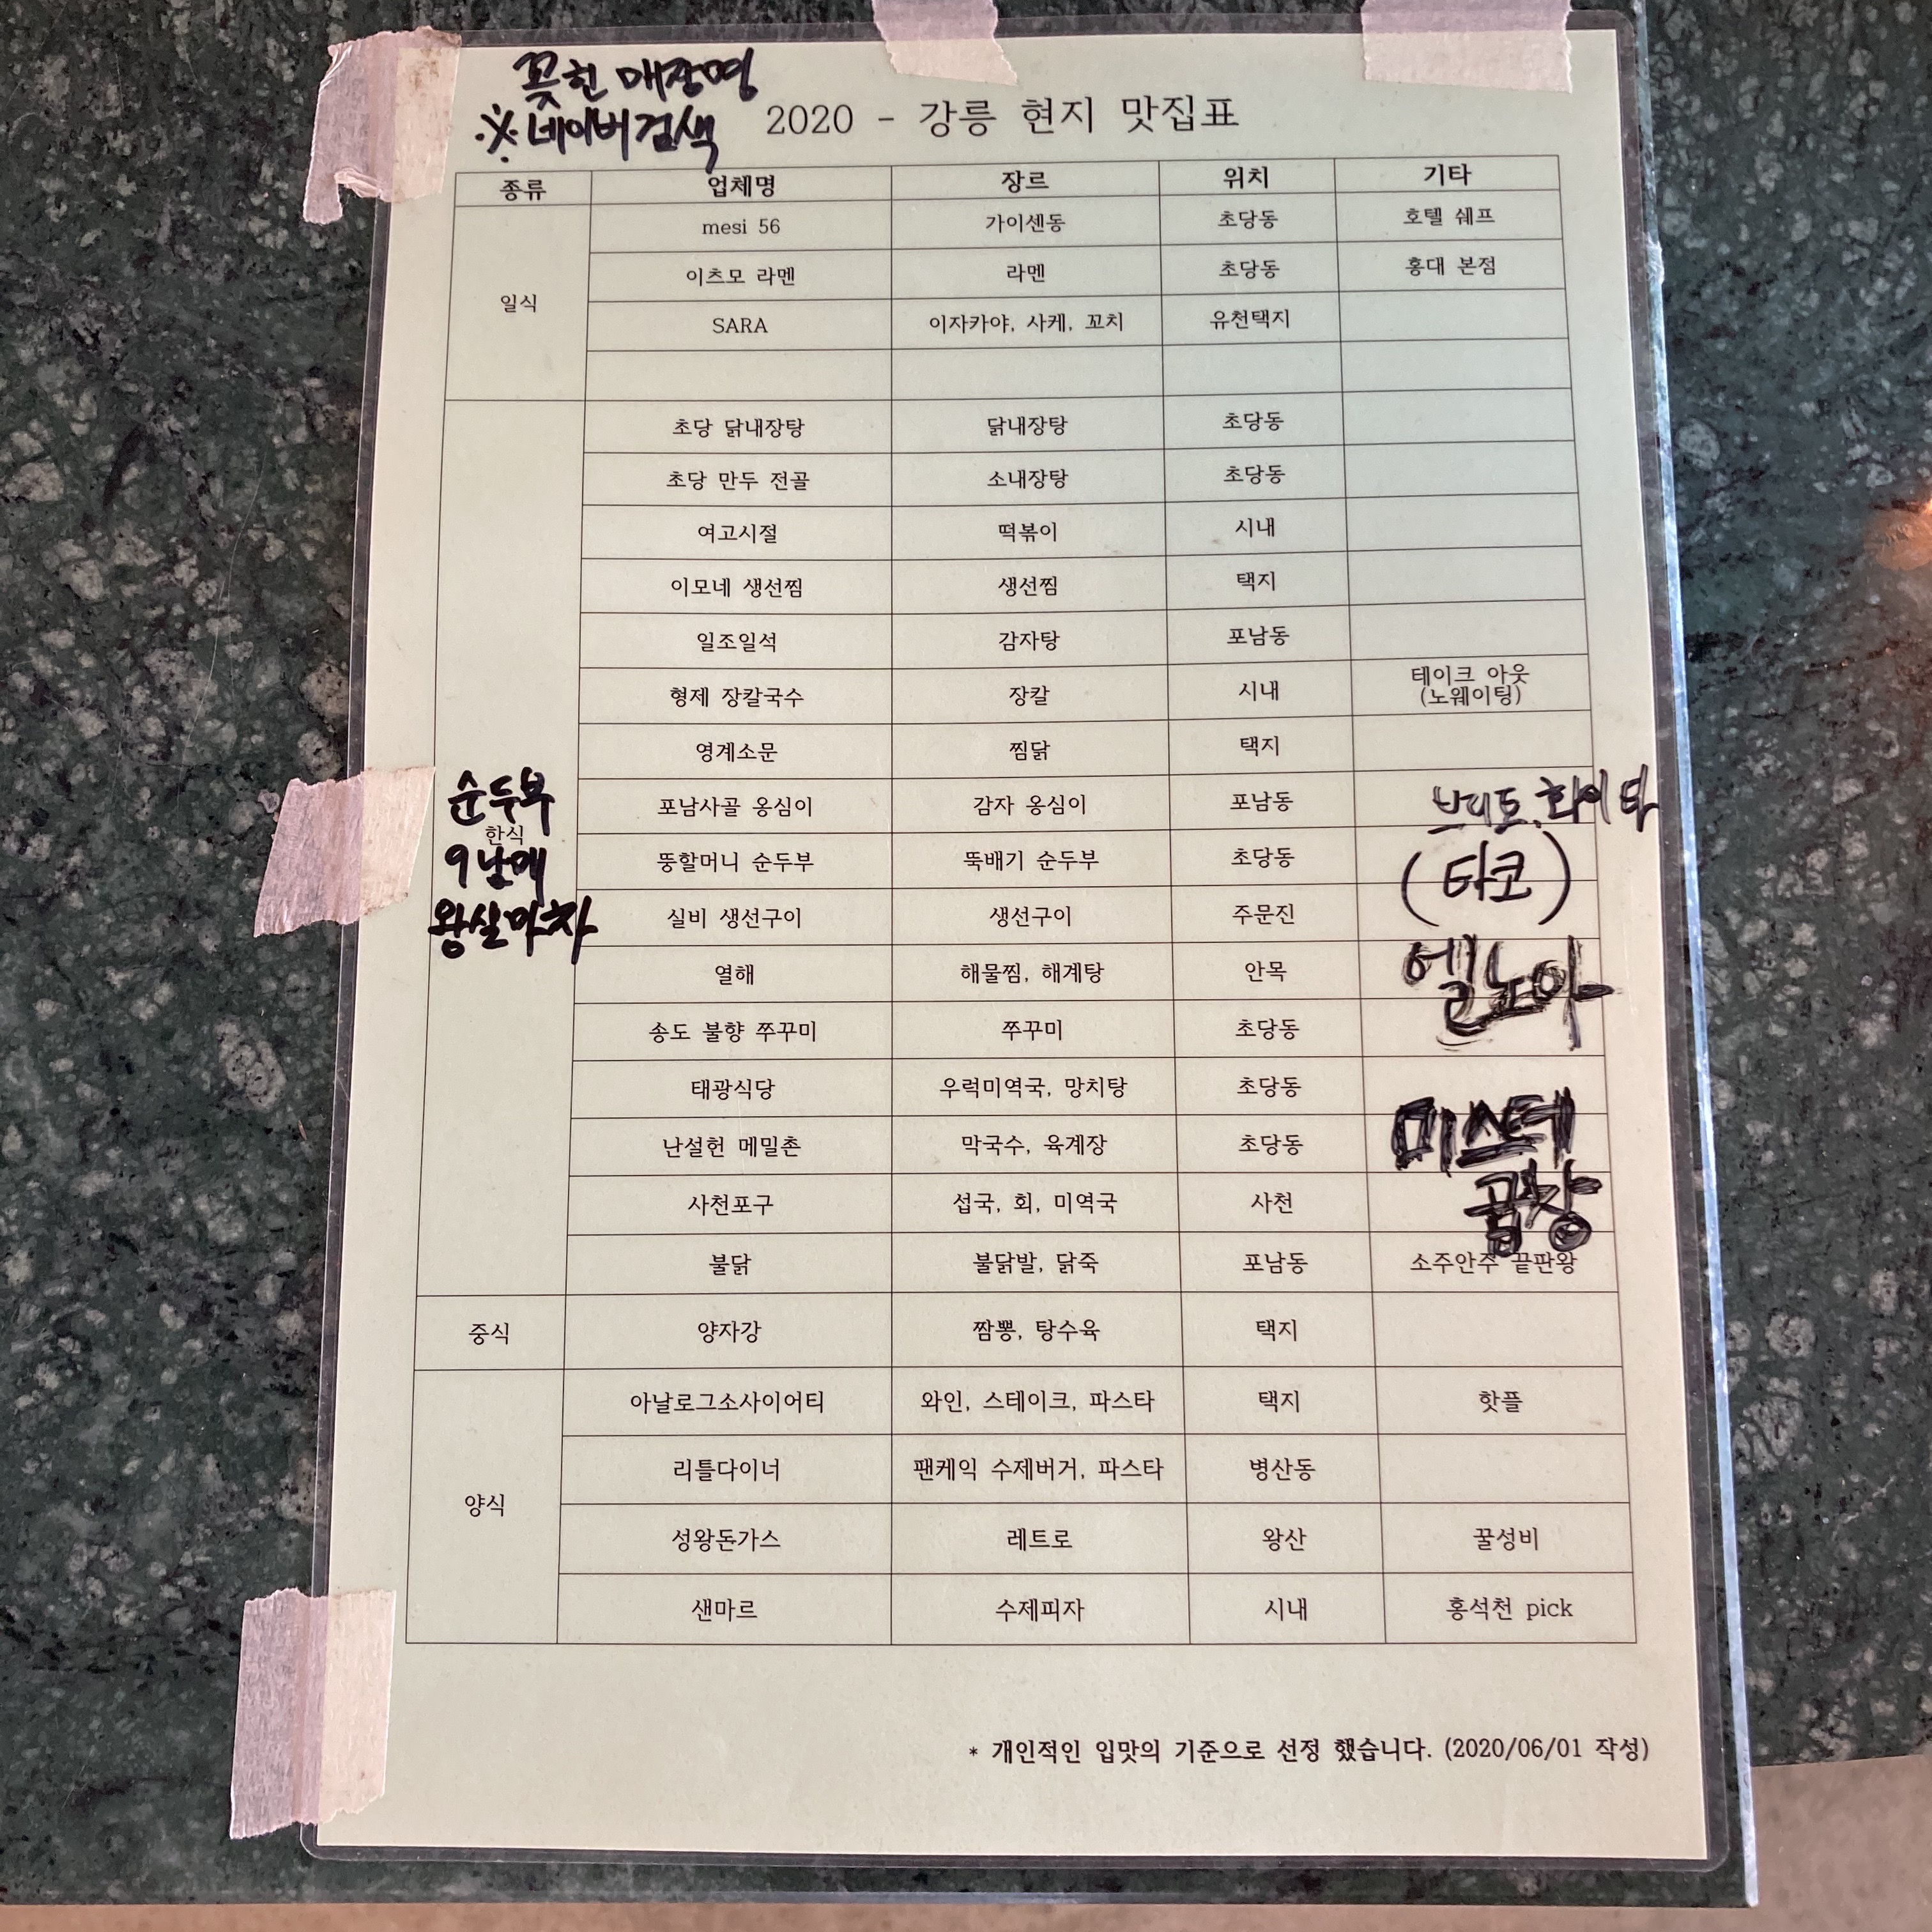 꽂힌 매장명
※ 네이버 검색
2020 - 강릉 현지 맛집표
종류 업체명 장르 위치 기타
일식
mesi 56 가이센동 초당동 호텔 쉐프
이츠모 라멘 라멘 초당동 홍대 본점
SARA 이자카야, 사케, 꼬치 유천택지
초당 닭내장탕 닭내장탕 초당동
초당 만두 전골 소내장탕 초당동
여고시절 떡볶이 시내
이모네 생선찜 생선찜 택지
일조일석 감자탕 포남동
형제 장칼국수 장칼 시내 테이크 아웃
(노웨이팅)
영계소문 찜닭 택지
순두부
한식
9남매
왕실마차
포남사골 옹심이 감자 옹심이 포남동
뚱할머니 순두부 뚝배기 순두부 초당동
실비 생선구이 생선구이 주문진
열해 해물찜, 해계탕 안목
송도 불향 쭈꾸미 쭈꾸미 초당동
태광식당 우럭미역국, 망치탕 초당동
난설헌 메밀촌 막국수, 육계장 초당동
사천포구 섭국, 회, 미역국 사천
불닭 불닭발, 닭죽 포남동 소주안주 끝판왕
브리또, 화이타
(타코)
엘노아
미스테
곱창
중식 양자강 짬뽕, 탕수육 택지
양식
아날로그소사이어티 와인, 스테이크, 파스타 택지 핫플
리틀다이너 팬케익 수제버거, 파스타 병산동
성왕돈가스 레트로 왕산 꿀성비
샌마르 수제피자 시내 홍석천 pick
* 개인적인 입맛의 기준으로 선정 했습니다. (2020/06/01 작성)